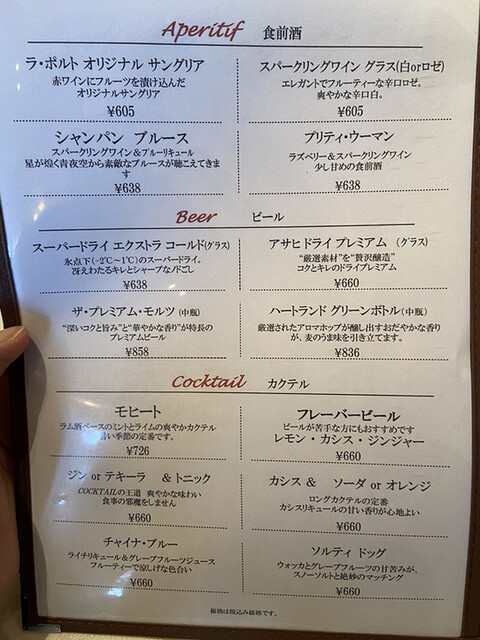 Aperitif 食前酒
ラ・ポルト オリジナル サングリア
赤ワインにフルーツを漬け込んだ
オリジナルサングリア
¥605
スパークリングワイン グラス(白orロゼ)
エレガントでフルーティーな辛口ロゼ。
爽やかな辛口白。
¥605
シャンパン ブルース
スパークリングワイン&ブルーリキュール
星が煌く青夜空から素敵なブルースが聴こえてきます
¥638
プリティ・ウーマン
ラズベリー&スパークリングワイン
少し甘めの食前酒
¥638
Beer ビール
スーパードライ エクストラ コールド(グラス)
氷点下(-2℃~1℃)のスーパードライ。
冴えわたるキレとシャープなノドごし
¥638
アサヒ ドライ プレミアム (グラス)
“厳選素材”を“贅沢醸造”
コクとキレのドライプレミアム
¥660
ザ・プレミアム・モルツ (中瓶)
“深いコクと旨み”と“華やかな香り”が特長の
プレミアムビール
¥858
ハートランド グリーンボトル(中瓶)
厳選されたアロマホップが醸し出すおだやかな香り
が、麦のうま味を引き立てます。
¥836
Cocktail カクテル
モヒート
ラム酒ベースのミントとライムの爽やかカクテル
暑い季節の定番です。
¥726
フレーバービール
ビールが苦手な方にもおすすめです
レモン・カシス・ジンジャー
¥660
ジン or テキーラ & トニック
COCKTAILの王道 爽やかな味わい
食事の邪魔をしません
¥660
カシス & ソーダ or オレンジ
ロングカクテルの定番
カシスリキュールの甘い香りが心地よい
¥660
チャイナ・ブルー
ライチリキュール&グレープフルーツジュース
フルーティーで涼しげな色合い
¥660
ソルティ ドッグ
ウォッカとグレープフルーツの甘苦みが、
スノーソルトと絶妙のマッチング
¥660
価格は税込み価格です。